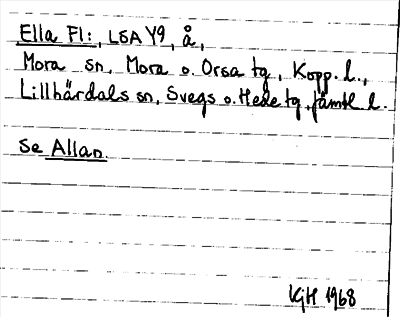 Ella Fl:, LSA Y9, å,
Mora sn, Mora o. Orsa tg, Kopp. l.,
Lillhärdals sn, Svegs o. Hede tg, Jämtl l.
Se Allan.
KGH 1968